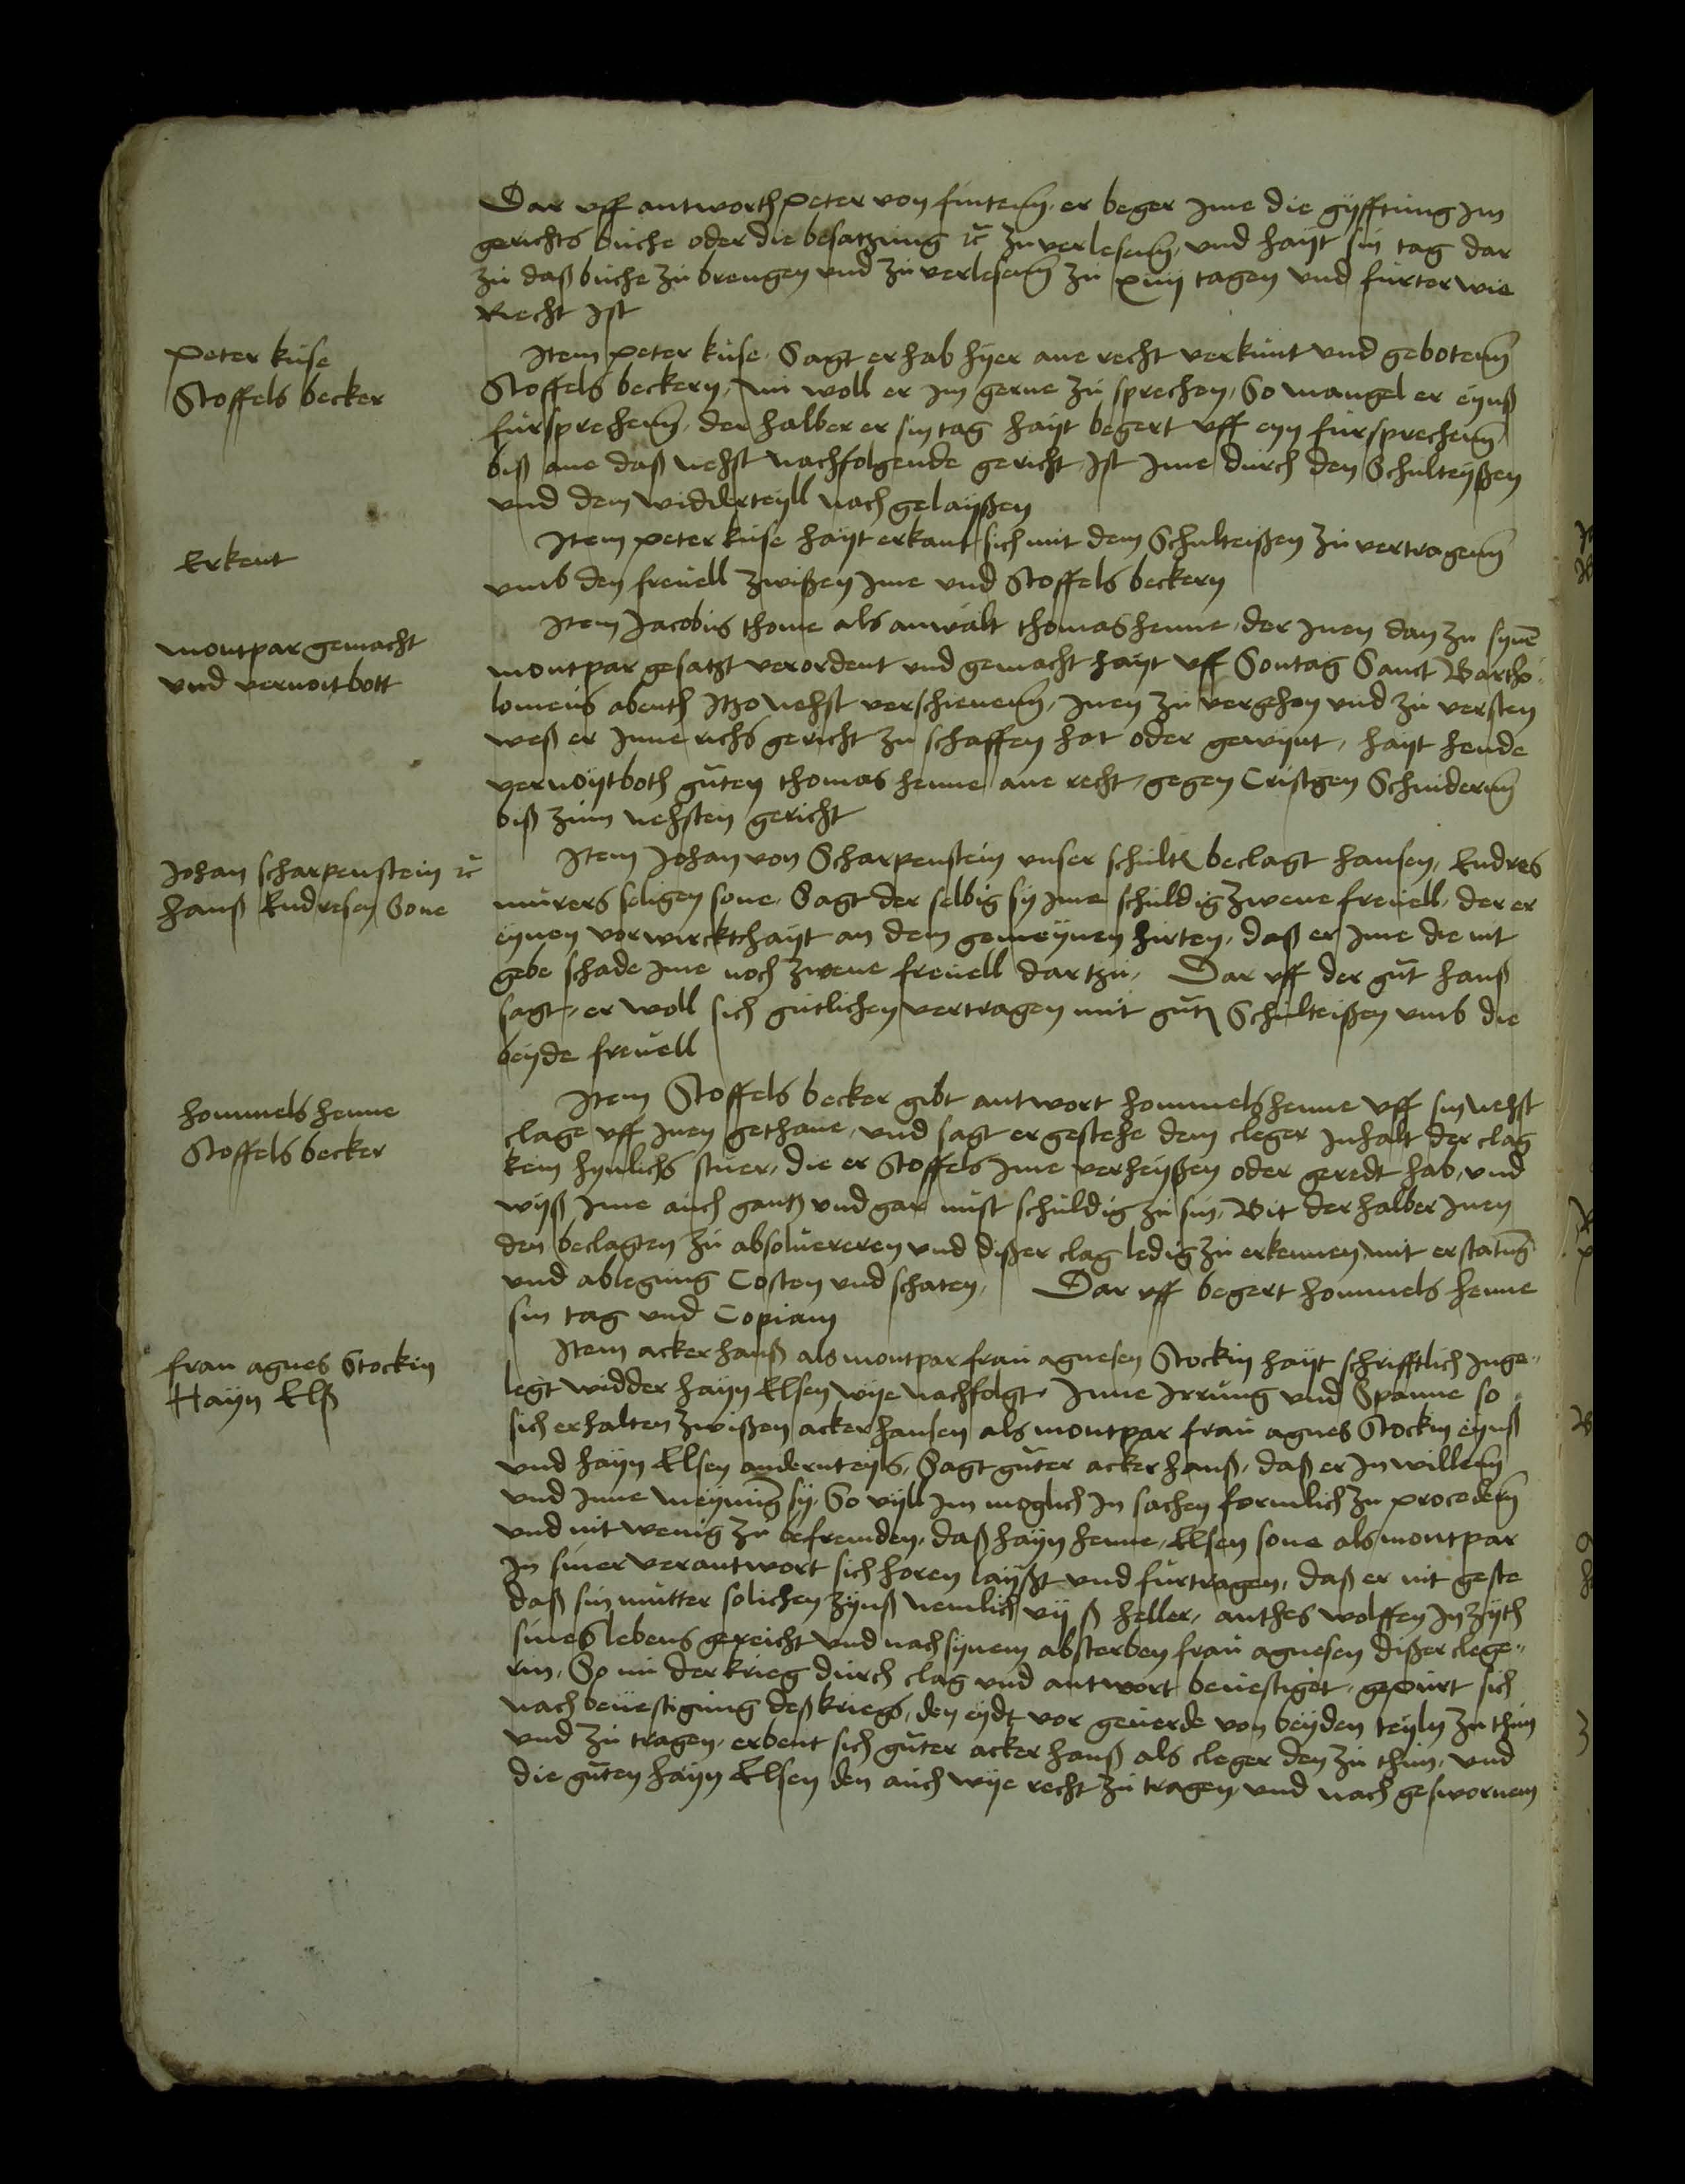 Dar vff antworth Peter von fintenn er beger Ime die gyfftung Im
gerichts buche oder die besatzung ꝛc zu verlesenn, vnd hayt sin tag dar
zu daß buche zu brengen vnd zu verlesenn zu xiiij tagen vnd furter wie
Recht Ist
Peter kuse
Stoffels becker
Item peter kuse Sagt er hab hyer ane recht verkunt vnd gebotenn
Stoffels beckern, nu woll er Im gerne zu sprechen, So mangel er eynß
fursprechenn, der halber er sin tag hayt begert vff eyn fursprechenn
biß ane daß nehst nachfolgende gericht Ist Ime durch den Schulteyßen
vnd dem widderteyll nach gelayßen
Erkent
Item peter kuse hayt erkant sich mit dem Schulteißen zu vertragenn
vmb den freuell zwißen Ime vnd Stoffels beckern
montpar gemacht
vnd vernoitbott
Item Jacobus thome als anwalt thomas henne, der Inen dan zu syne
montpar gesatzt verordent vnd gemacht hayt vff Sontag Sanct Bartho-
lomeus abenth Itzo nehst verschienenn, Inen zu vergehen vnd zu versten
weß er Inne richs gericht zu schaffen hat oder gewynt, hayt hende
vernoytboth guten thomas henne ane recht, gegen Cristgen Schnidernn
biß zum nehsten gericht
Johan scharpenstein ꝛc
hanß Endresen Sone
Item Johan von Scharpenstein vnser schult beclagt hansen, Endres
murers seligen sone, Sagt der selbig sy Ime schuldig zwene freuell, der er
eynen verwirckt hayt an dem gemeynen hirten, daß er Ime die nit
gebe schade Ime noch zwene freuell dartzu, Dar vff der gut hanß
sagt, er woll sich gutlichen vertragen mit gut Schulteißen vmb die
beyde freuell
hommels henne
Stoffels becker
Item Stoffels becker gibt antwort hommels henne vff sin nehst
clage vff Inen gethane, vnd sagt er gestehe dem cleger Inhalt der clag
kein hynlichs stuer, die er Stoffels Ime verheyßen oder geredt hab, vnd
wyß Ime auch gantz vnd gar nust schuldig zu sin, Bit der halber Inen
den beclagten zu absoluereren vnd dißer clag ledig zu erkennen, mit erstatung
vnd ablegung Costen vnd schaten, Dar vff begert hommels henne
sin tag vnd Copiam
frau agnes Stockin
Hayn Elß
Item acker hanß als montpar frau agnesen Stockin hayt schrifftlich Inge-
legt widder hayn Elsen wye nachfolgt, Inne Irrung vnd Spanne so
sich erhalten zwißen acker hansen als montpar frau agnes Stockin eynß
vnd hayn Elsen andernteyls, Sagt guter acker hanß, daß er In willenn
vnd Inne meynung sy, So vyll Im moglich In sachen formlich zu procedern
vnd nit wenig zu befremden, daß hayn henne, Elsen sone als montpar
In siner verantwort sich horen layßt vnd furtragen, daß er nit geste
daß sin mutter solichen zynß nemlich vij ß heller, anthes wolffen In zyth
sines lebens gereicht vnd nach synem absterben frau agnesen dißer clege-
rin, So nu der krieg durch clag vnd antwort beuestiget, gepurt sich
nach beuestigung deß kriegs, den eydt vor geuerde von beyden teyln zu thun
vnd zu tragen, erbeut sich guter acker hanß als cleger den zu thun, vnd
die guten hayn Elsen den auch wye recht zu tragen, vnd nach geswornem